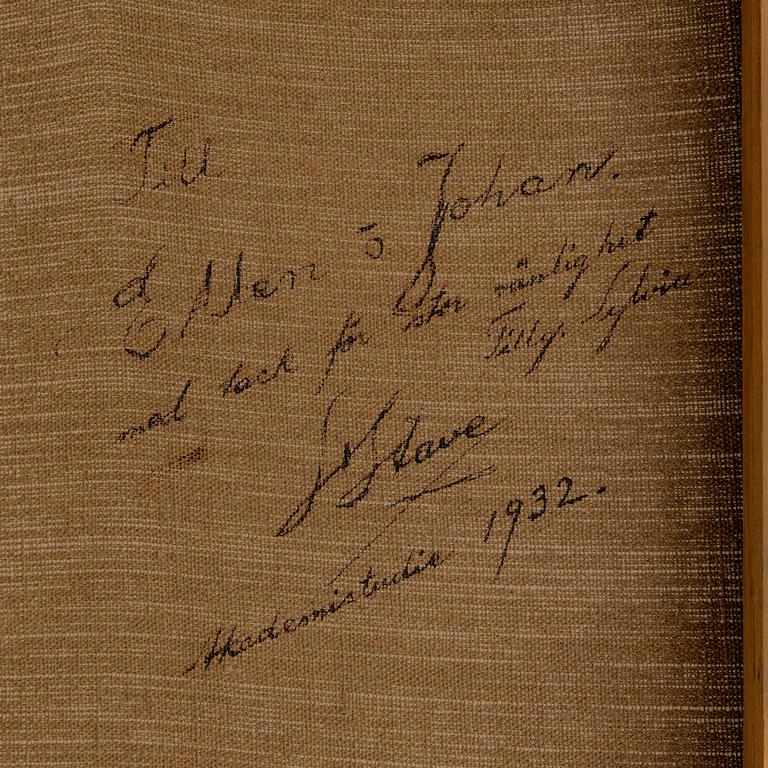 Till
Ellen o Johan.
med tack för stor vänlighet
Tillg. Sylvia
Stave
Akademistudie 1932.